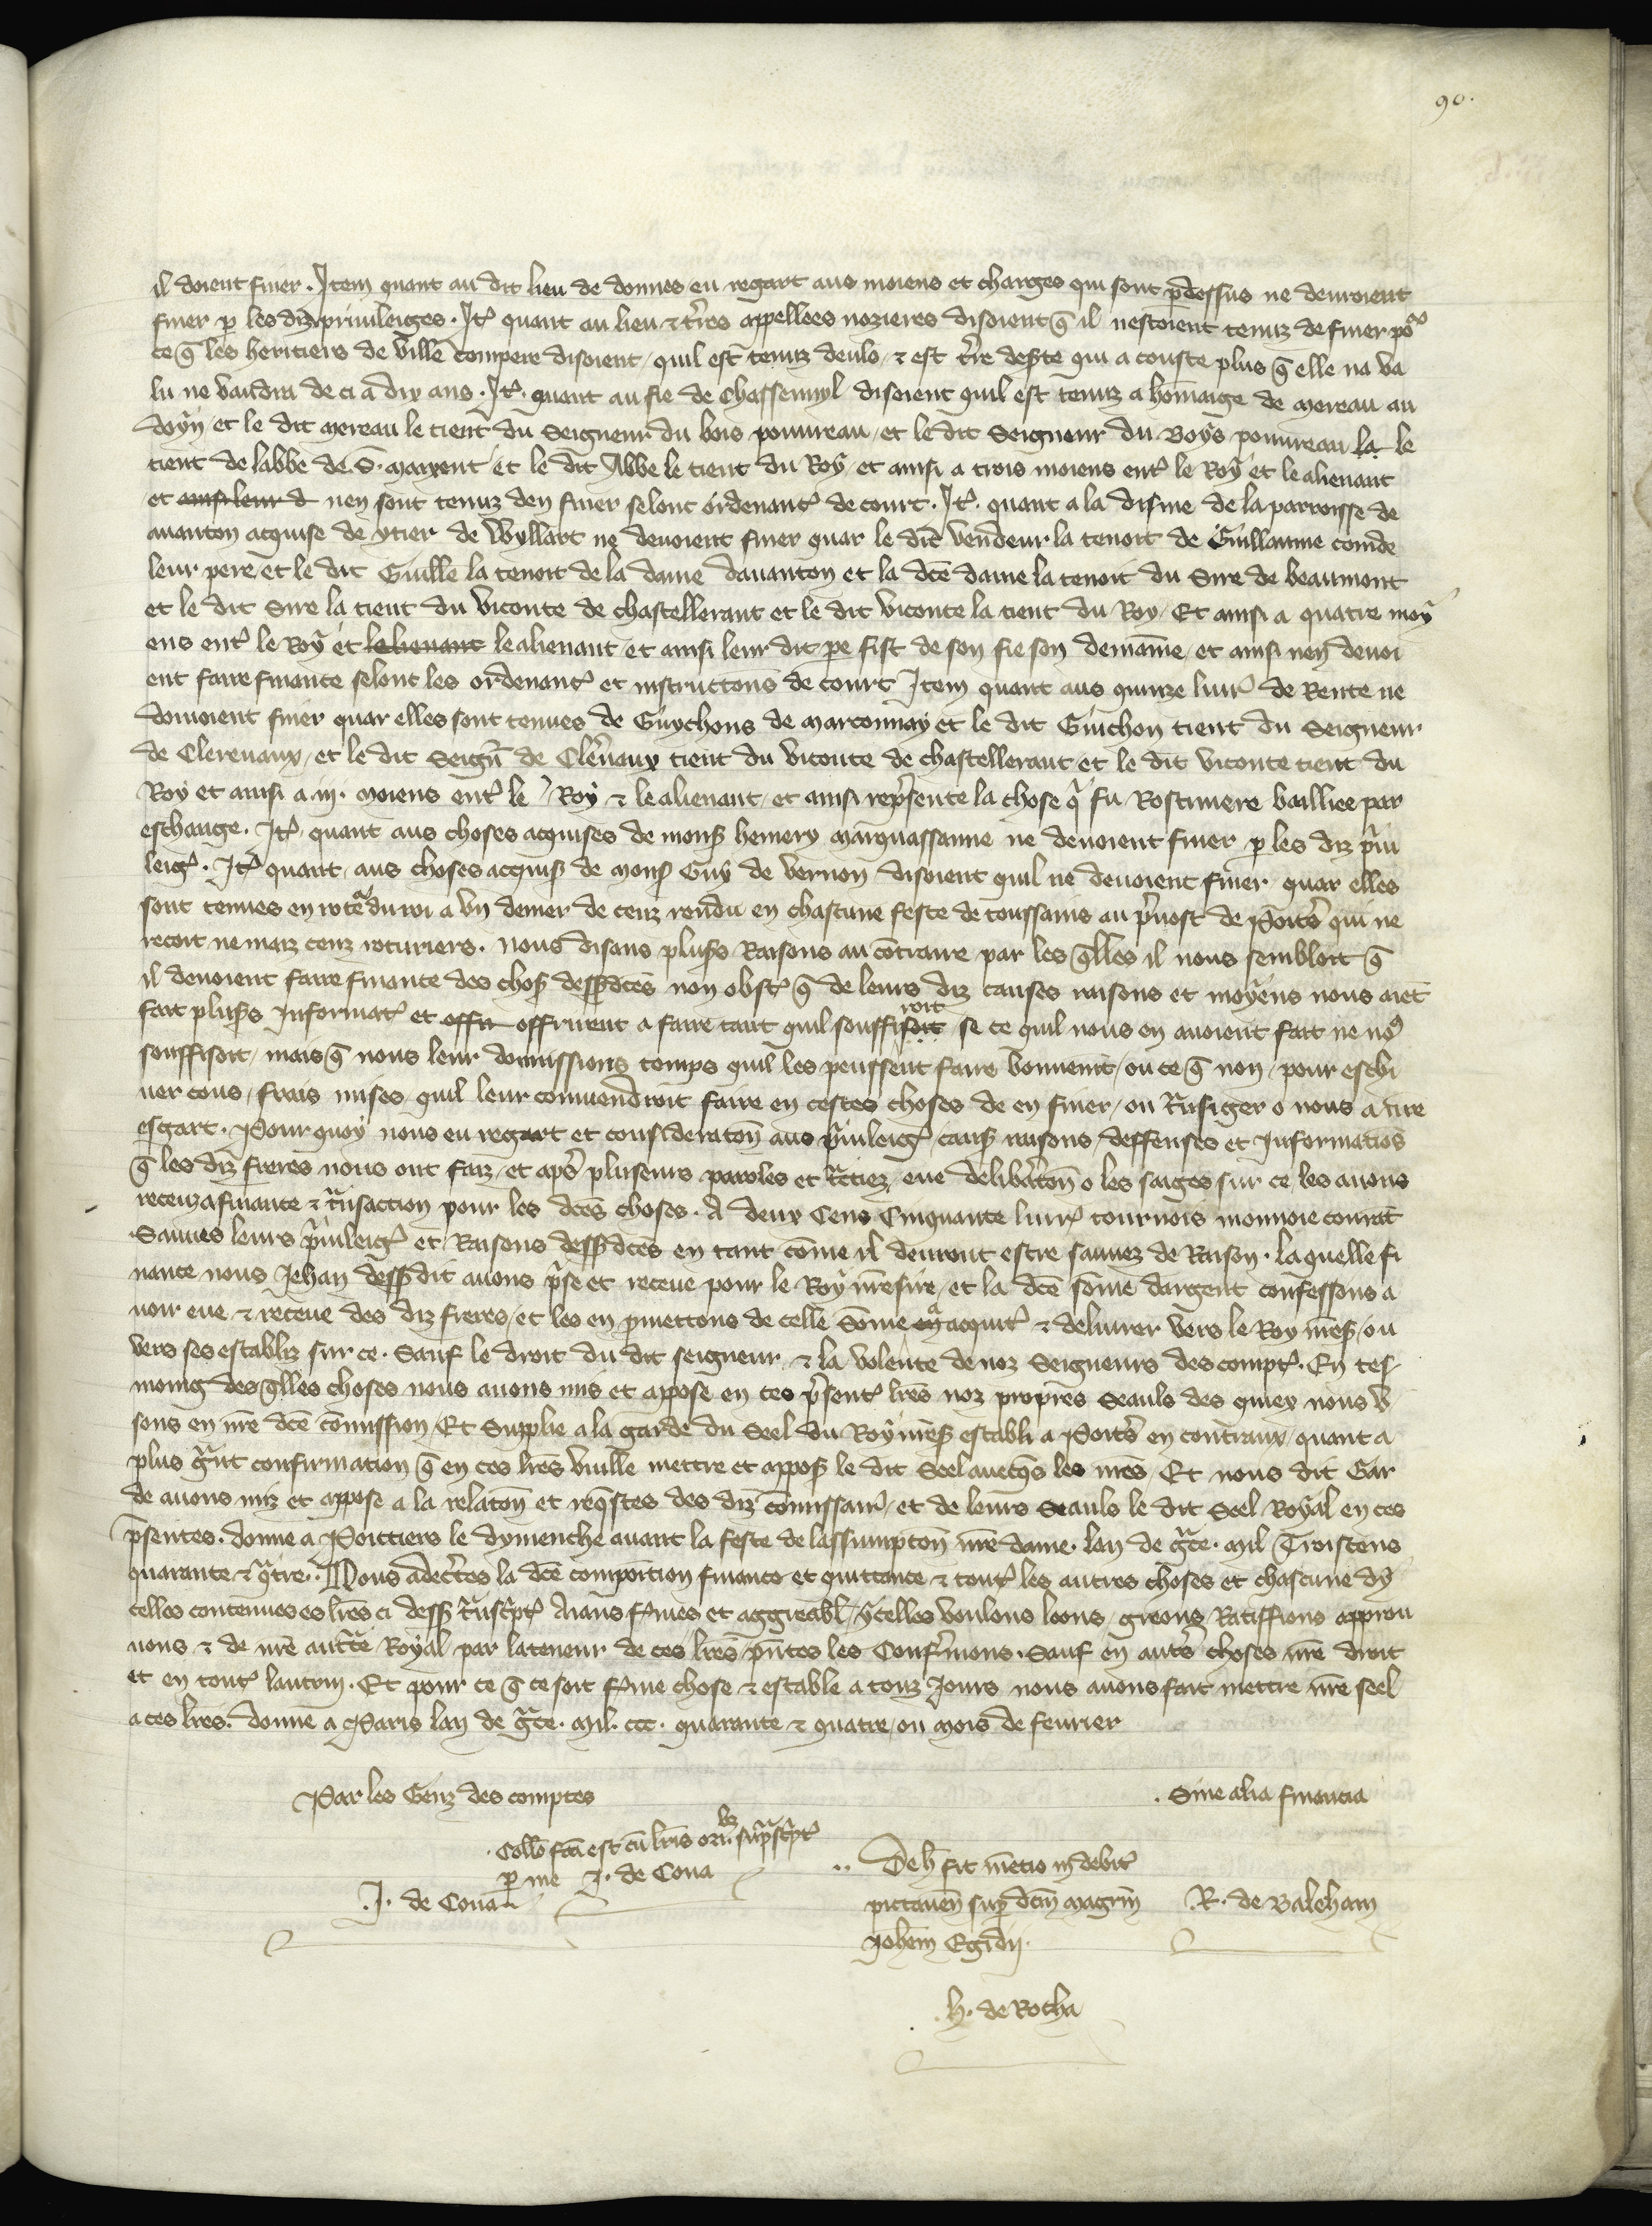 90.
il doient finer. Item quant au dit lieu de donnes eu regart aus moiens et charges qui sont p̄dessus ne devroient
finer p les diz privileiges. It̄ quant au lieu & t̄res appellees nozieres disoient q̄ il nestoient tenuz de finer po͛
ce q̄ les heritiers de Ville compere disoient quil est tenuz deulo & est t̄re deſ̄te qui a couste plus q̄ elle na va
lu ne vaudra de ci a dix ans. It̄. quant au fie de Chassennyl disoient quil est tenuz a hōmaige de mereau au
doyn et le dit mereau le tient du Seigneur du bois pouvreau et le dit Seigneur du Boys pouvreau la le
tient de labbe de S. maixent et le dit Abbe le tient du Roy et ainsi a trois moiens ent̄ le Roy et le alienant
et ainsi leur d nen sont tenuz den finer selont ordenant̄ de court. It̄. quant a la disme de la parroisse de
avanton acquise de ytier de Wyllart ne devoient finer quar le dit vendeur la tenoit de Guillaume coinde
leur pere et le dit Guille la tenoit de la dame davanton et la dc̄e dame la tenoit du Sire de beaumont
et le dit Sire la tient du viconte de chastellerant et le dit viconte la tient du Roy Et ainsi a quatre moy
ens ent̄ le Roy et lelienant le alienant et ainsi leur dit pe fist de son fie son demāine et ainsi nen devoi
ent faire finance selont les ordenanc̄ et instructōns de court Item quant aus quinze livr̄ de Rente ne
devoient finer quar elles sont tenues de Guychons de marconnay et le dit Guichon tient du Seigneur
de Clerevaux et le dit Seign̄ de Clēvaux tient du viconte de chastellerant et le dit viconte tient du
Roy et ainsi a iij. moiens ent̄ le Roy & le alienant et ainsi rep̄sente la chose q̄ fu Rostiniere bailliee par
eschange. It̄ quant aus choses acquises de monſ̄ hemery marquassanne ne devoient finer p les diz p̄vi
leiḡ. It̄ quant aus choses acquiſ̄ de monſ̄ Guy de vernon disoient quil ne devoient finer quar elles
sont tenues en rote du roi a un denier de cenz rendu en chascune feste de toussains au p̄vost de Poit̄s qui ne
recoit ne maiz cenz roturiers. Nous disans pluſ̄s Raisons au cōtraire par les q̄lles il nous sembloit q̄
il devoient faire finance des choſ̄ deſſ̄dc̄es non obst̄ q̄ de leurs diz causes raisons et moyens nous aiēt
fait pluſ̄s Informac̄ et offri offrirent a faire tant quil souffisoit roit se ce quil nous en avoient fait ne no͛
souffisoit mais q̄ nous leur donnissions temps quil les peussent faire bonnemt̄ ou ce q̄ non pour eschi
ver cous frais mises quil leur convendroit faire en cestes choses de en finer ou t̄nsiger o nous a nr̄e
esgart. Pour quoy nous eu regart et consideratōn aus p̄vileiḡ cauſ̄ raisons deffenses et Informatiōs
q̄ les diz freres nous ont faiz et ap̄s pluseurs paroles et t̄ctiez eue delib̄atōn o les saiges sur ce les avons
receuz a finance & t̄nsaction pour les dc̄es choses. A deux Cens Cinquante livr̄ tournois monnoie courāt
Sauves leurs p̄vileiḡ et Raisons deſſ̄dc̄es en tant cōme il devront estre sauvez de Raison. la quelle fi
nance nous Jehan deſſ̄dit avons p̄se et receue pour le Roy nr̄e sire et la dc̄e sōme dargent confessons a
voir eue & receue des diz freres et les en p̄mettons de celle Sōme en acquit̄ & delivrer vers le Roy nr̄eſ̄ ou
vers ses establiz sur ce. Sauf le droit du dit seigneur & la volente de noz Seigneurs des compt̄. En tes
moing des q̄lles choses nous avons mis et appose en ces p̄sent̄ lr̄es noz propres Seauls des quiex nous u
sons en nr̄e dc̄e cōmission Et Supplie a la garde du Seel du Roy nr̄eſ̄ establi a Poit̄s en contraux quant a
plus ḡnt confirmation q̄ en ces lr̄es vuille mettre et appoſ̄ le dit Seel avecq̄s les nr̄es Et nous dit Gar
de avons miz et appose a la relatōn et req̄stes des diz cōmissaiꝛ̄ et de leurs Seauls le dit Seel Royal en ces
p̄sentes. donne a Poittiers le dymenche avant la feste de lassumptōn nr̄e dame. lan de ḡce. mil Troiscens
quarante & q̄tre. Nous adec̄tes la dc̄e composition finance et quittance & tout̄ les autres choses et chascune dy
celles contenues es lr̄es ci deſſ̄ t̄nsc̄pt̄ Aians f̄mes et aggreabl̄ ycelles voulons loons greons Ratiffions approu
vons & de nr̄e auct̄te Royal par la teneur de ces lr̄es p̄ntes les Conf̄mons. Sauf en aut̄s choses nr̄e droit
et en tout̄ lautrui. Et pour ce q̄ ce soit f̄me chose & estable a touz Jours nous avons fait mettre nr̄e seel
a ces lr̄es. donne a Paris lan de ḡce. mil. ccc. quarante & quatre ou mois de fevrier
Par les Genz des comptes
Sine alia financia
Collō fc̄a est cū lr̄is orig. sup̄sc̄pt̄
p me J. de Cona
J. de Cona
De h̄ fit mētio in debit̄
pictaven̄ sup̄ dc̄m magr̄m
Joh̄em Egidij.
R. de Baleham
h. de Rocha